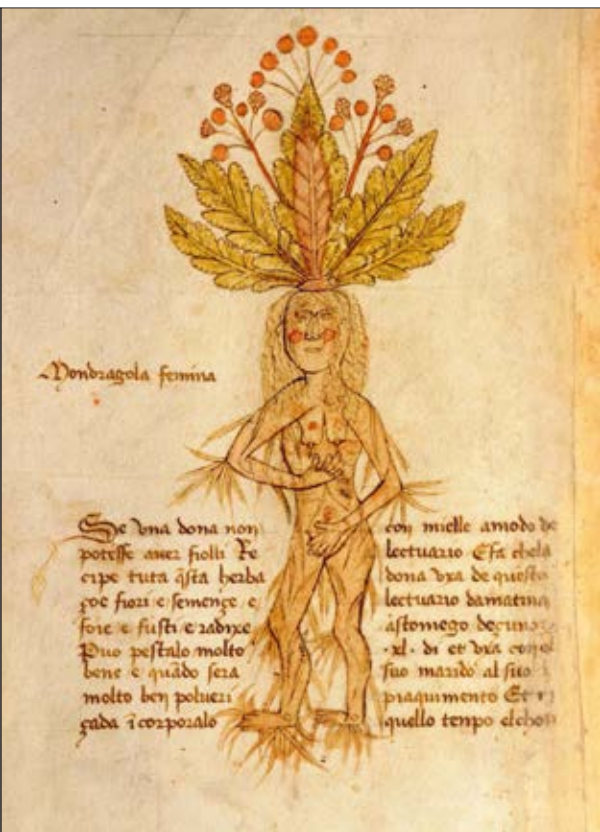 Mondragola femina
Se vna dona non
potesse auer fiolli Re
cipe tuta q̄sta herba
çoe fiori e semençe e
foie e fusti e radixe
Puo pestalo molto
bene e quādo sera
molto ben polueri
çada ī corporalo
con mielle amodo de
lectuario E fa chela
dona vxa de questo
lectuario damatina
astomego deçuno
.xl. di et vxa con el
suo marido al suo
piaquimento Et
quello tenpo el